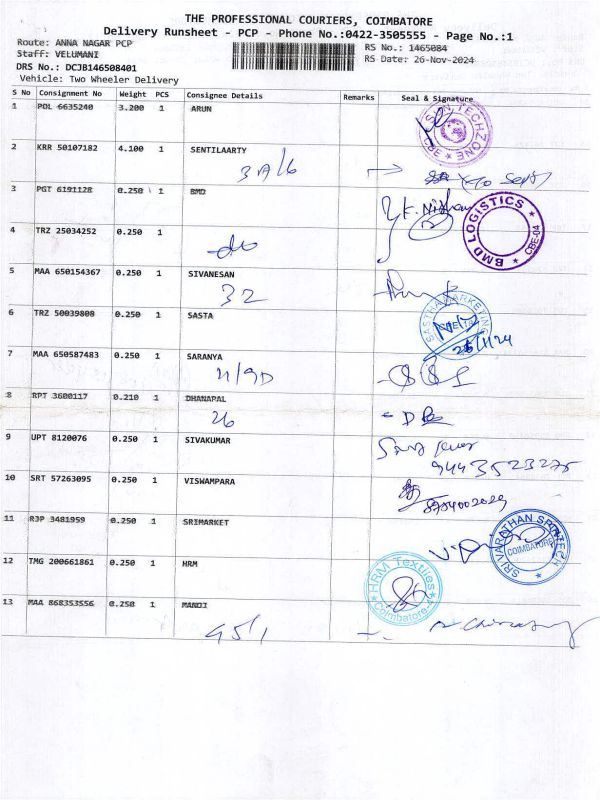 THE PROFESSIONAL COURIERS, COIMBATORE
Delivery Runsheet - PCP - Phone No.:0422-3505555 - Page No.:1
Route: ANNA NAGAR PCP RS No.: 1465084
Staff: VELUMANI RS Date: 26-Nov-2024
DRS No.: DCJB146508401
Vehicle: Two Wheeler Delivery
S No Consignment No Weight PCS Consignee Details Remarks Seal & Signature
1 POL 6635240 3.200 1 ARUN
SUN TECHZONE CBE
2 KRR 50107182 4.100 1 SENTILAARTY
3A/6
3 PGT 6191128 0.250 1 BMD
BMD LOGISTICS CBE-04
4 TRZ 25034252 0.250 1
5 MAA 650154367 0.250 1 SIVANESAN
32
6 TRZ 50039808 0.250 1 SASTA
SASTHA MARKETING
7 MAA 650587483 0.250 1 SARANYA
11/9D
8 RPT 3600117 0.210 1 DHANAPAL
26
9 UPT 8120076 0.250 1 SIVAKUMAR
9443523275
10 SRT 57263095 0.250 1 VISWAMPARA
11 RJP 3481959 0.250 1 SRIMARKET
SRI VARATHAN COIMBATORE
12 TMG 200661861 0.250 1 HRM
HRM Textiles Coimbatore
13 MAA 868353556 0.250 1 MANOI
45/1